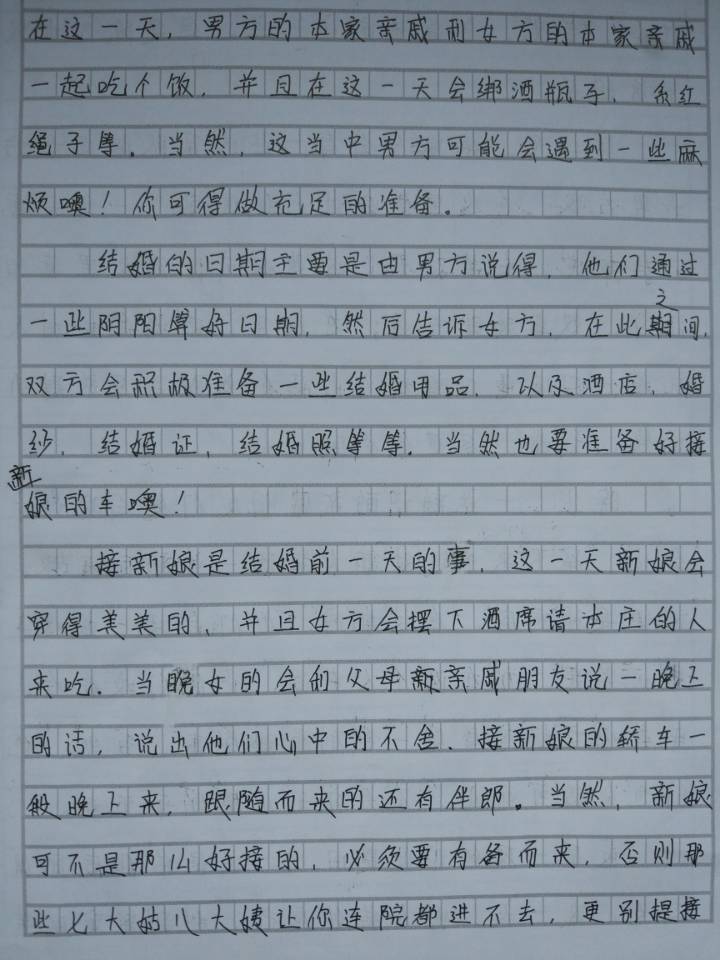 在这一天，男方的本家亲戚和女方的本家亲戚
一起吃个饭，并且在这一天会绑酒瓶子，系红
绳子等。当然，这当中男方可能会遇到一些麻
烦噢！你可得做充足的准备。
结婚的日期主要是由男方说得，他们通过
一些阴阳算好日期，然后告诉女方，在此期之间，
双方会积极准备一些结婚用品，以及酒店，婚
纱，结婚证，结婚照等等。当然也要准备好接
新娘的车噢！
接新娘是结婚前一天的事，这一天新娘会
穿得美美的，并且女方会摆下酒席请本庄的人
来吃。当晚女的会和父母亲戚朋友说一晚上
的话，说出他们心中的不舍，接新娘的轿车一
般晚上来，跟随而来的还有伴郎。当然，新娘
可不是那么好接的，必须要有备而来，否则那
些七大姑八大姨让你连院都进不去，更别提接